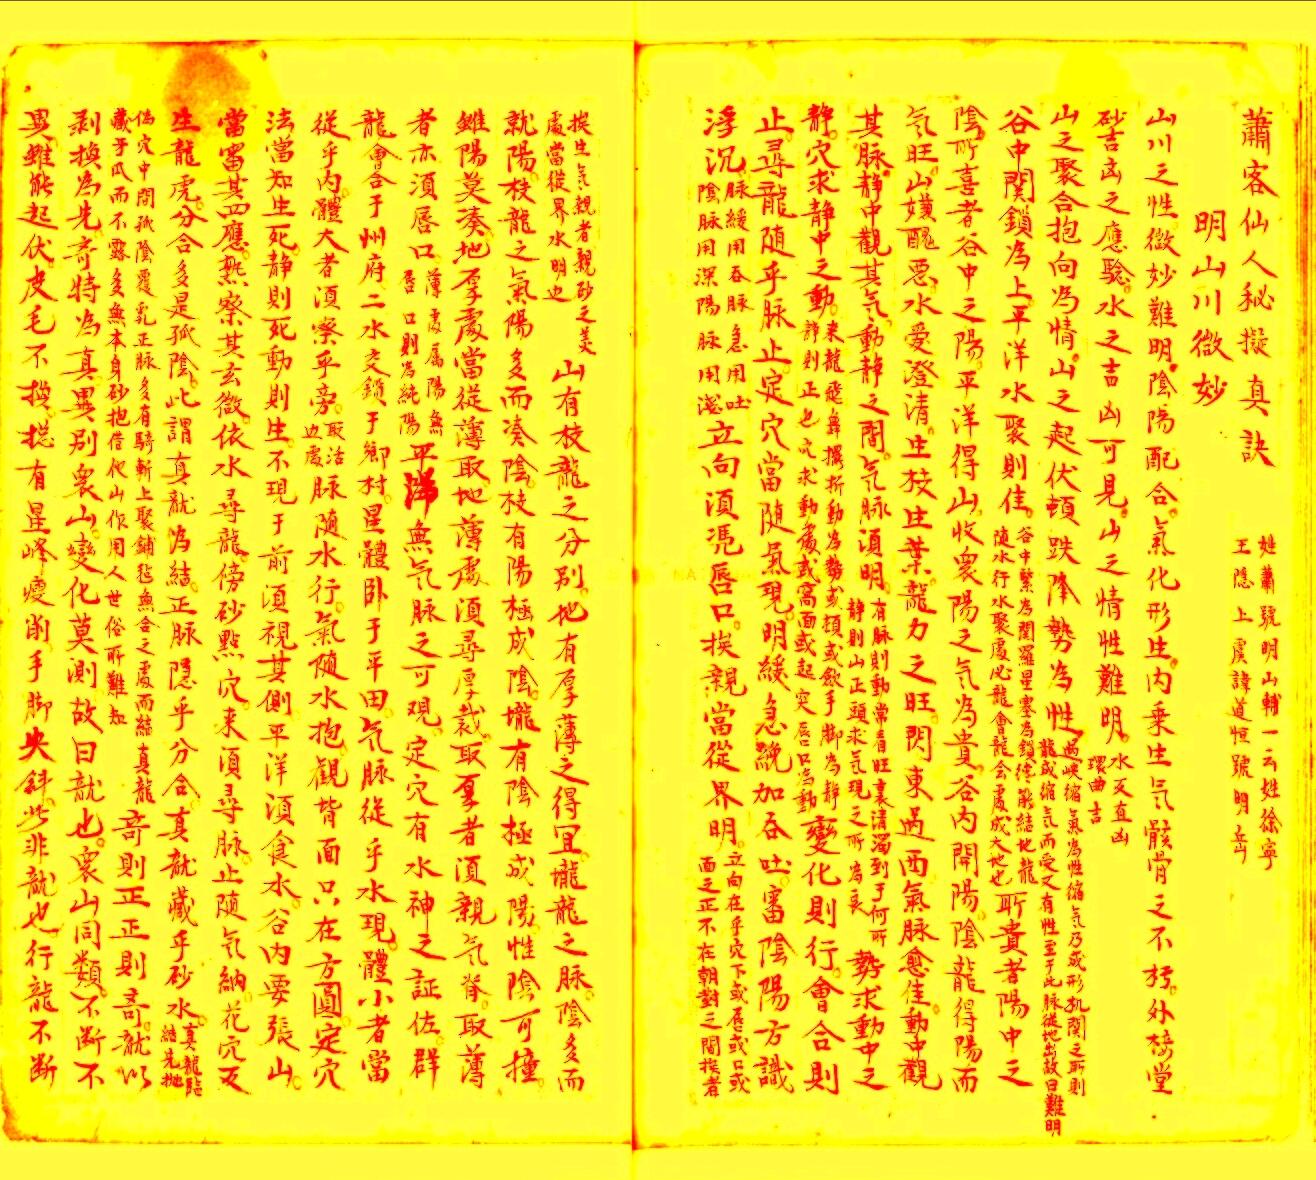 蕭客仙人秘授真訣
姓蕭號明山輔一云姓徐寧
王隱上虞諱道恒號明岳
明山川微妙
山川之性微妙難明陰陽配合氣化形生內乘生氣骸骨之不朽外接堂
砂吉凶之應驗水之吉凶可見山之情性難明
水反直凶
環曲吉
山之聚合抱向為情山之起伏頓跌降勢為性
過峽縮氣為性縮氣乃成形机関之所則
龍或縮氣而受又有性至于此脉從地出故曰難明
谷中関鎖為上平洋水聚則佳
谷中繫為関羅星塞為鎖能結地龍
随水行水聚處必龍會龍会處成大地也
所貴者陽中之
陰所喜者谷中之陽平洋得山收衆陽之气為貴谷内開陽陰龍得陽而
气旺山媸醜惡水受澄清生枝生葉龍力之旺閃東過西氣脉愈佳動中觀
其脉静中觀其气動静之間气脉湏明
有脉則動常看旺衰清濁到于何所
静則山正頭求气現之所為長
勢求動中之
静穴求静中之動
来龍飛舞摺折動為勢或頓或斂手脚為静
静則正也穴求動處或窩面或起突唇口為動
變化則行會合則
止尋龍随乎脉止定穴當随氣現明緩急饒加吞吐審陰陽方識
浮沉
脉緩用吞脉急用吐
陰脉用深陽脉用淺
立向湏慿唇口挨親當從界明
立向在乎穴下或唇或口或
面之正不在朝對之間挨者
挨生气親者親砂之美
處當從界水明也
山有枝龍之分别地有厚薄之得宜壠龍之脉陰多而
就陽枝龍之氣陽多而湊陰枝有陽極成陰壠有陰極成陽性陰可撞
雖陽莫湊地厚處當從薄取地薄處湏尋厚裁取厚者湏親气脊取薄
者亦湏唇口
薄處属陽無
唇口則為純陽
平洋無气脉之可观定穴有水神之証佐群
龍會合于州府二水交鎖于鄉村星體卧于平田气脉從乎水現體小者當
從乎内體大者湏察乎旁
取活
边處
脉随水行氣随水抱觀背面只在方圓定穴
法當知生死静則死動則生不現于前湏視其側平洋湏食水谷内要張山
當審其四應熟察其玄微依水尋龍傍砂點穴来湏尋脉止随气納花穴反
生龍虎分合多是孤陰此謂真龍為結正脉隱乎分合真龍藏乎砂水
真龍臨
結先抛
偽穴中間孤陰覆乳正脉多有騎斬上聚鋪毡無合之處而結真龍
藏于爪而不露多無本身砂抱借他山作用人世俗所難知
奇則正正則奇龍以
剥換為先奇特為真異别衆山變化莫測故曰龍也衆山同類不断不
異雖能起伏皮毛不換摠有星峰瘦削手脚尖斜此非龍也行龍不断